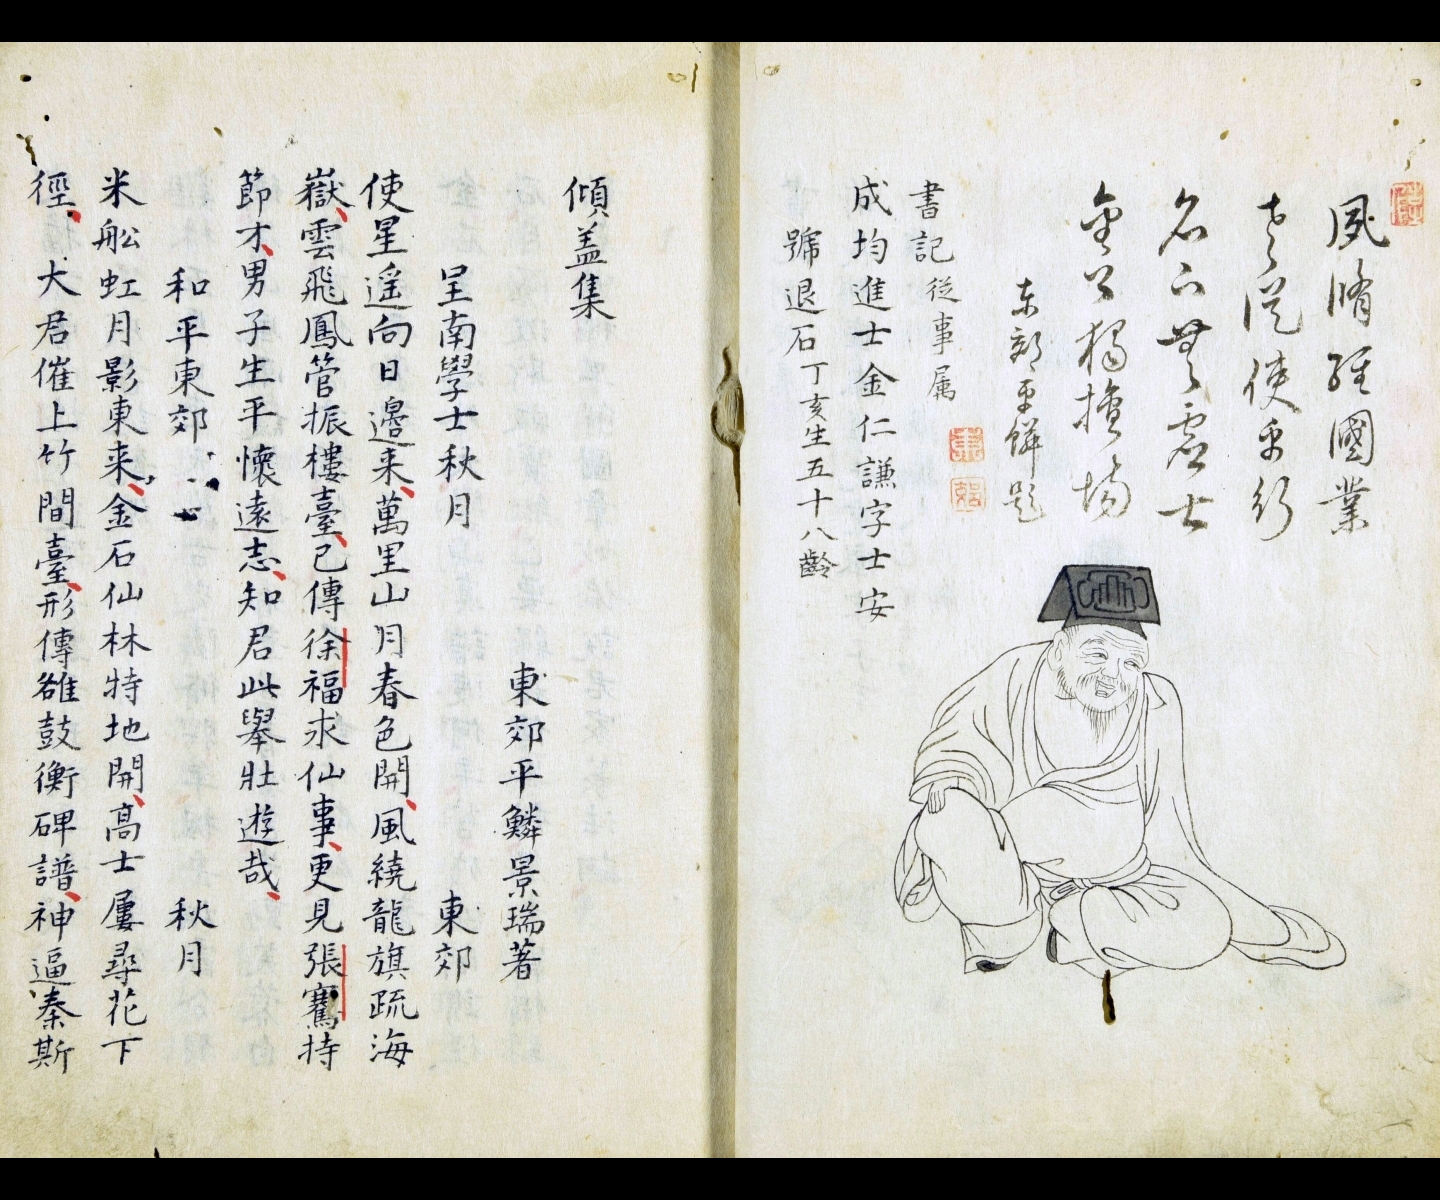 夙脩經國業
老從使臣行
名下無虛士
金公獨擅場
東郊平鱗題
書記從事属
成均進士金仁謙字士安
號退石丁亥生五十八齡
傾盖集
東郊平鱗景瑞著
呈南學士秋月 東郊
使星遥向日邉来萬里山月春色開風繞龍旗疏海
嶽雲飛鳳管振樓臺已傳徐福求仙事更見張騫持
節才男子生平懷遠志知君此舉壯遊哉
和平東郊 秋月
米舩虹月影東来金石仙林特地開高士屢尋花下
徑大君催上竹間臺形傳雒鼓衡碑譜神逼秦斯